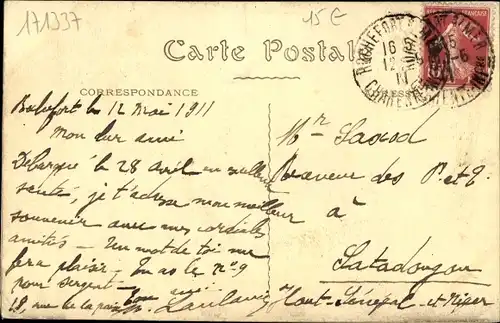 171337
15 €
Carte Postale
ROCHEFORT
CHARENTE INFRE
16
12 -5
11
CORRESPONDANCE
Rochefort le 12 Mai 1911
Mon cher ami
Débarqué le 28 avril en meilleure
santé, je t'adresse mon meilleur
souvenir avec mes cordiales
amitiés - Un mot de toi me
fera plaisir - Tu as le n° 9
pour sergent -
ami
18, rue de la paix
Mr
Graveur des P et T
à
Satadougou
Haut-Sénégal-et-Niger